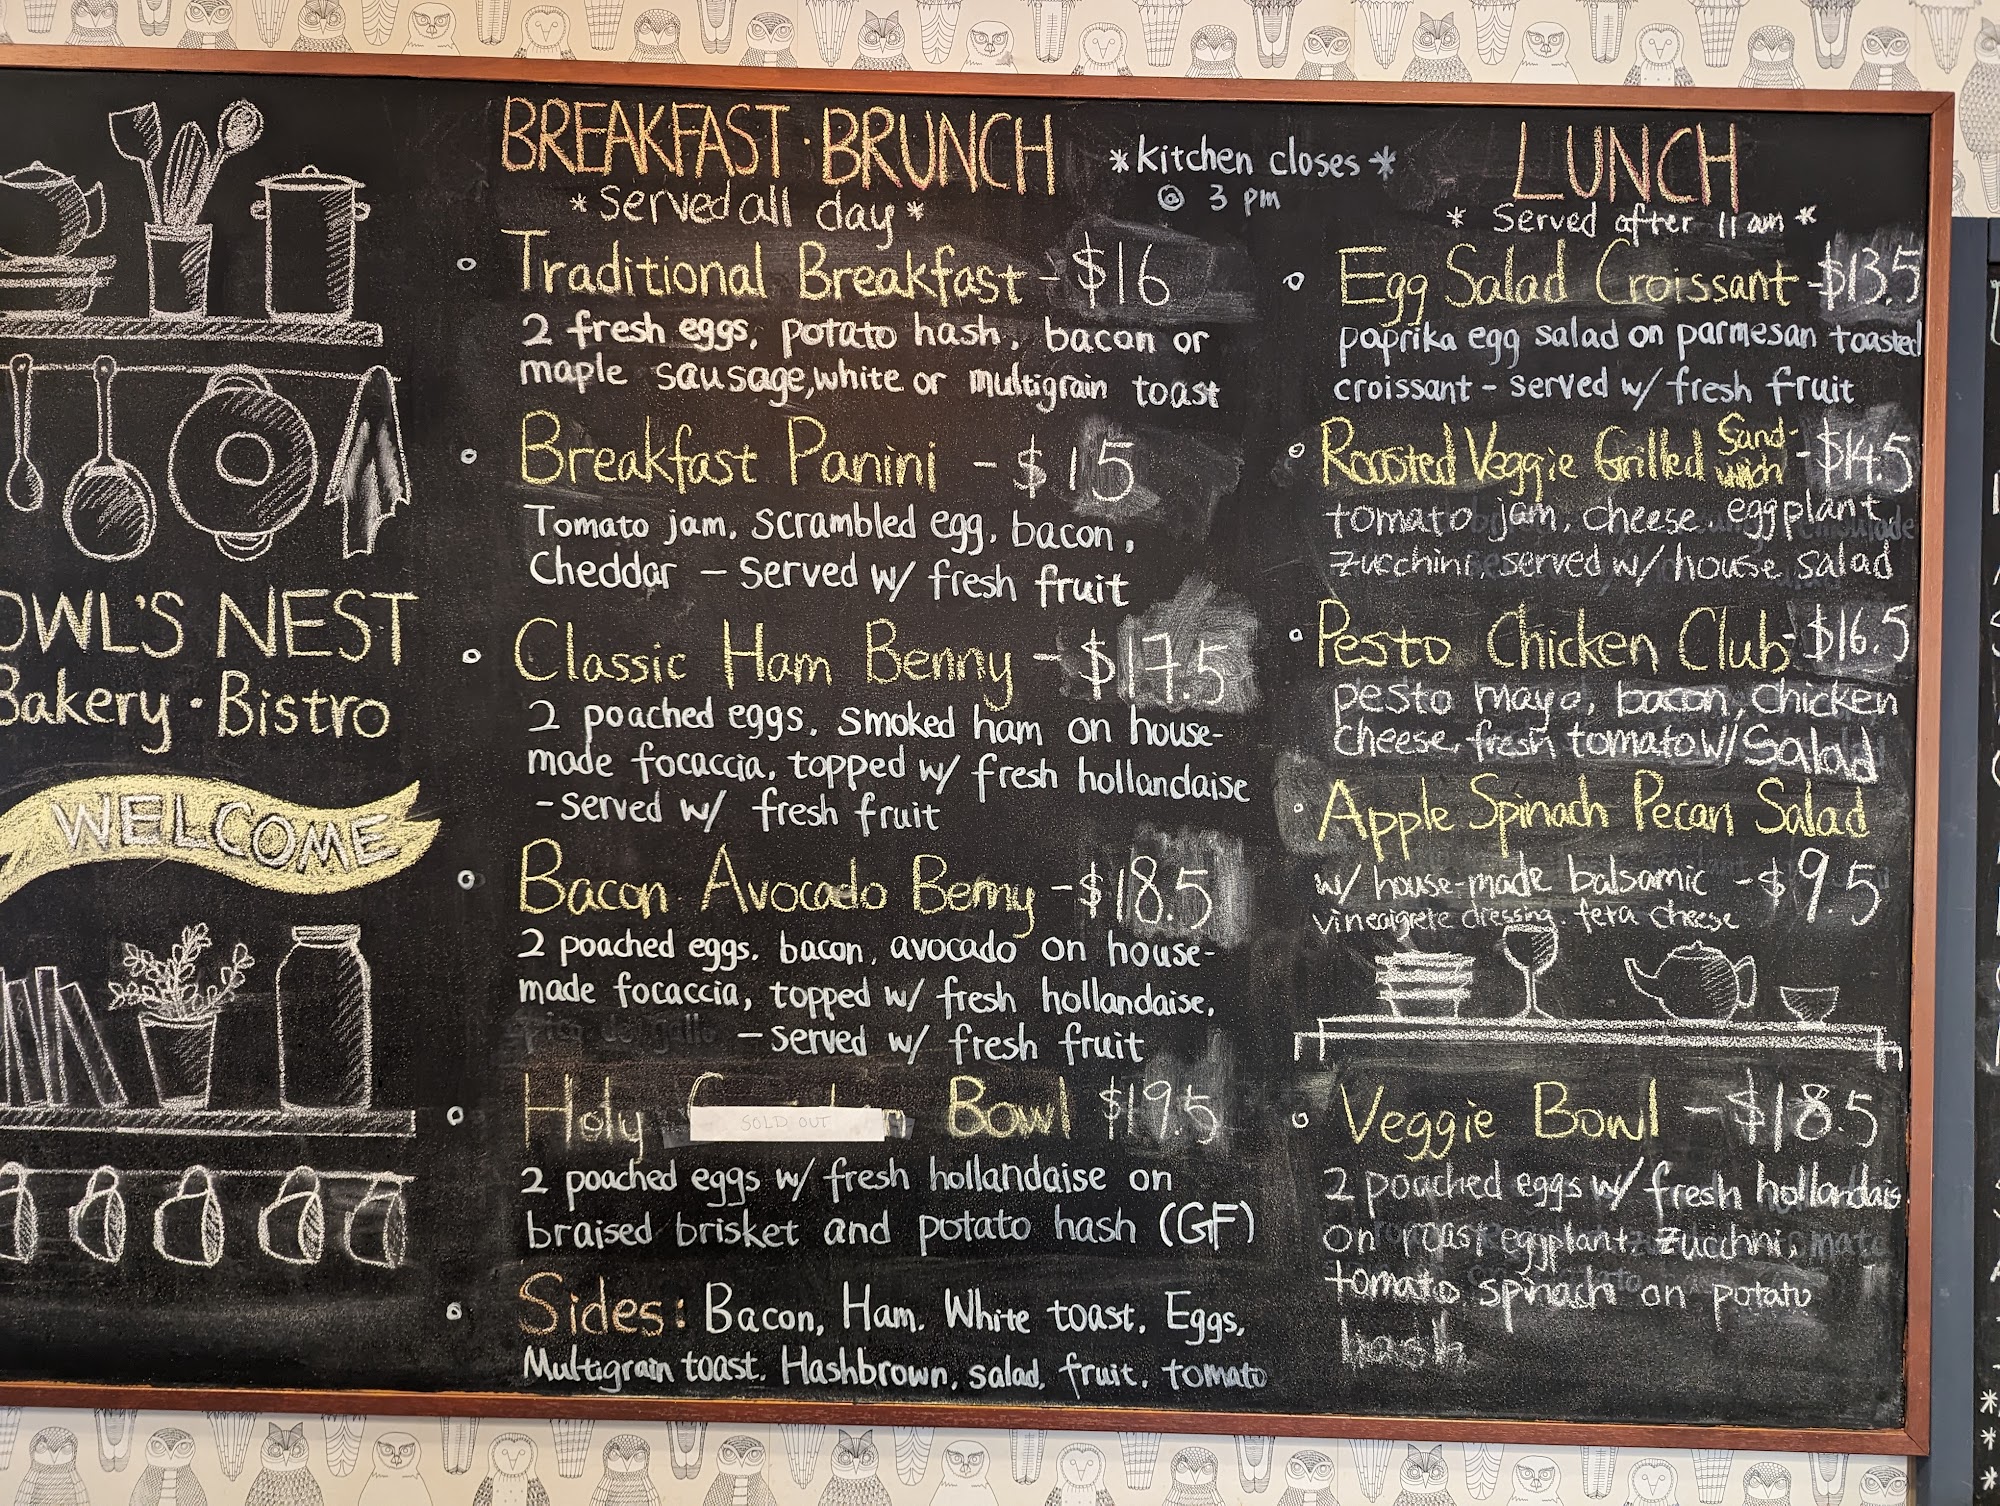 OWL'S NEST
Bakery · Bistro
WELCOME
BREAKFAST · BRUNCH
*Served all day*
Traditional Breakfast - $16
2 fresh eggs, potato hash, bacon or
maple sausage, white or multigrain toast
Breakfast Panini - $15
Tomato jam, scrambled egg, bacon,
Cheddar - served w/ fresh fruit
Classic Ham Benny - $17.5
2 poached eggs, smoked ham on house-
made focaccia, topped w/ fresh hollandaise
- served w/ fresh fruit
Bacon Avocado Benny - $18.5
2 poached eggs, bacon, avocado on house-
made focaccia, topped w/ fresh hollandaise,
- served w/ fresh fruit
Holy Bowl $19.5
SOLD OUT
2 poached eggs w/ fresh hollandaise on
braised brisket and potato hash (GF)
Sides: Bacon, Ham. White toast. Eggs,
Multigrain toast. Hashbrown, salad, fruit, tomato
*kitchen closes*
@ 3 pm
LUNCH
* Served after 11 am *
Egg Salad Croissant - $13.5
paprika egg salad on parmesan toasted
croissant - served w/ fresh fruit
Roasted Veggie Grilled Sand-wich - $14.5
tomato jam, cheese, eggplant,
zucchini, served w/ house salad
Pesto Chicken Club - $16.5
pesto mayo, bacon, chicken
cheese, fresh tomato w/ salad
Apple Spinach Pecan Salad
w/ house-made balsamic - $9.5
vineaigrete dressing. feta cheese
Veggie Bowl - $18.5
2 poached eggs w/ fresh hollandais
on roast eggplant, zucchni,
tomato spinach on potato
hash